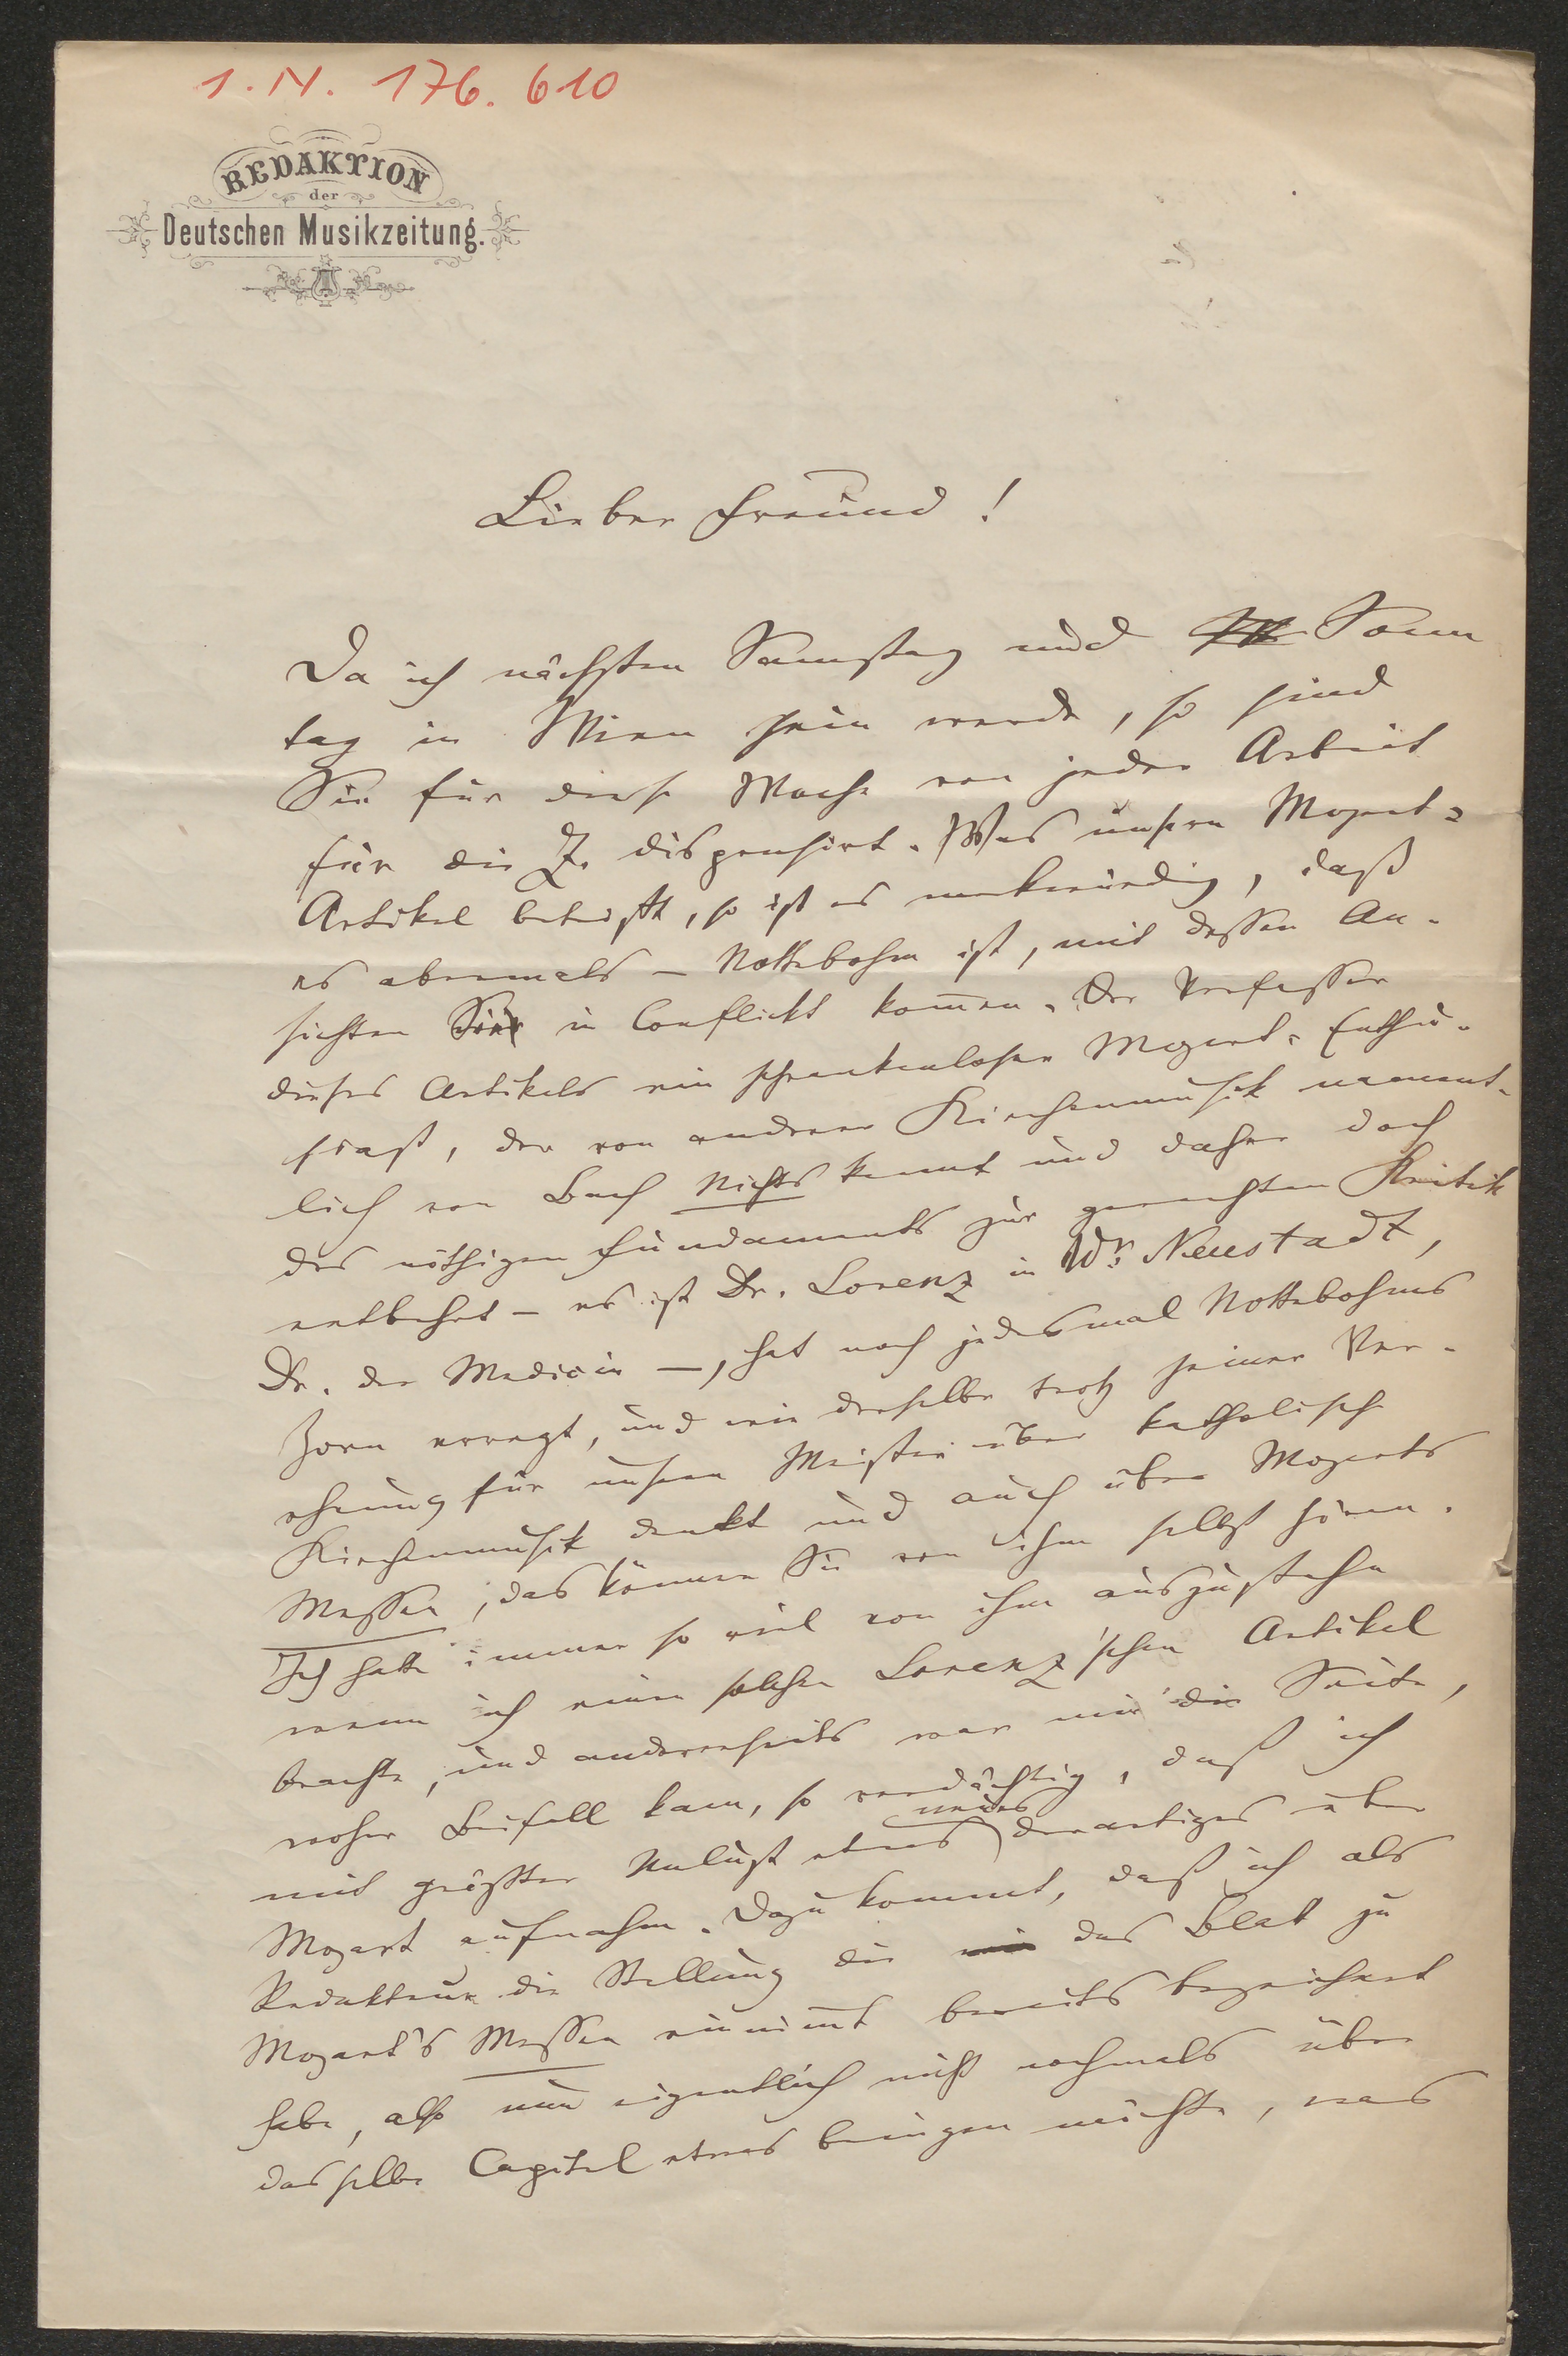 I. N. 176. 610
REDAKTION
der
Deutschen Musikzeitung.
Lieber Freund!
Da ich nächsten Samstag und Sonn
tag in Wien sein werde, so sind
Sie für diese Woche von jeder Arbeit
für die Z. dispensirt. Was unsern Mozart-
Artikel betrifft, so ist es merkwürdig, daß
es abermals – Nottebohm ist, mit dessen An-
sichten Sie in Conflickt kom̄en. Der Verfasser
dieses Artikels ein schrankenloser Mozart-Enthu-
siast, der von anderer Kirchenmusik nament-
lich von Bach Nichts kennt und daher doch
des nöthigen Fundaments zur gerechten Kritik
entbehrt – es ist Dr. Lorenz in Wr. Neustadt,
Dr. der Medicin –, hat noch jedesmal Nottebohms
Zorn erregt, und wie derselbe trotz seiner Ver-
ehrung für unsern Meister über katholische
Kirchenmusik denkt und auch über Mozarts
Messen, das können Sie von ihm selbst hören.
Ich hatte immer so viel von ihm auszustehn
wenn ich einen solchen Lorenz'schen Artikel
brachte, und anderseits war mir die Seite,
woher Beifall kam, so verdächtig, daß ich
mit größter Unlust etwas neues derartiges über
Mozart aufnahm. Dazu kommt, daß ich als
Redakteur die Stellung die das Blat zu
Mozart's Messen einnim̄t bereits bezeichnet
habe, also nun eigentlich nicht nochmals über
dasselbe Capitel etwas bringen möchte, was